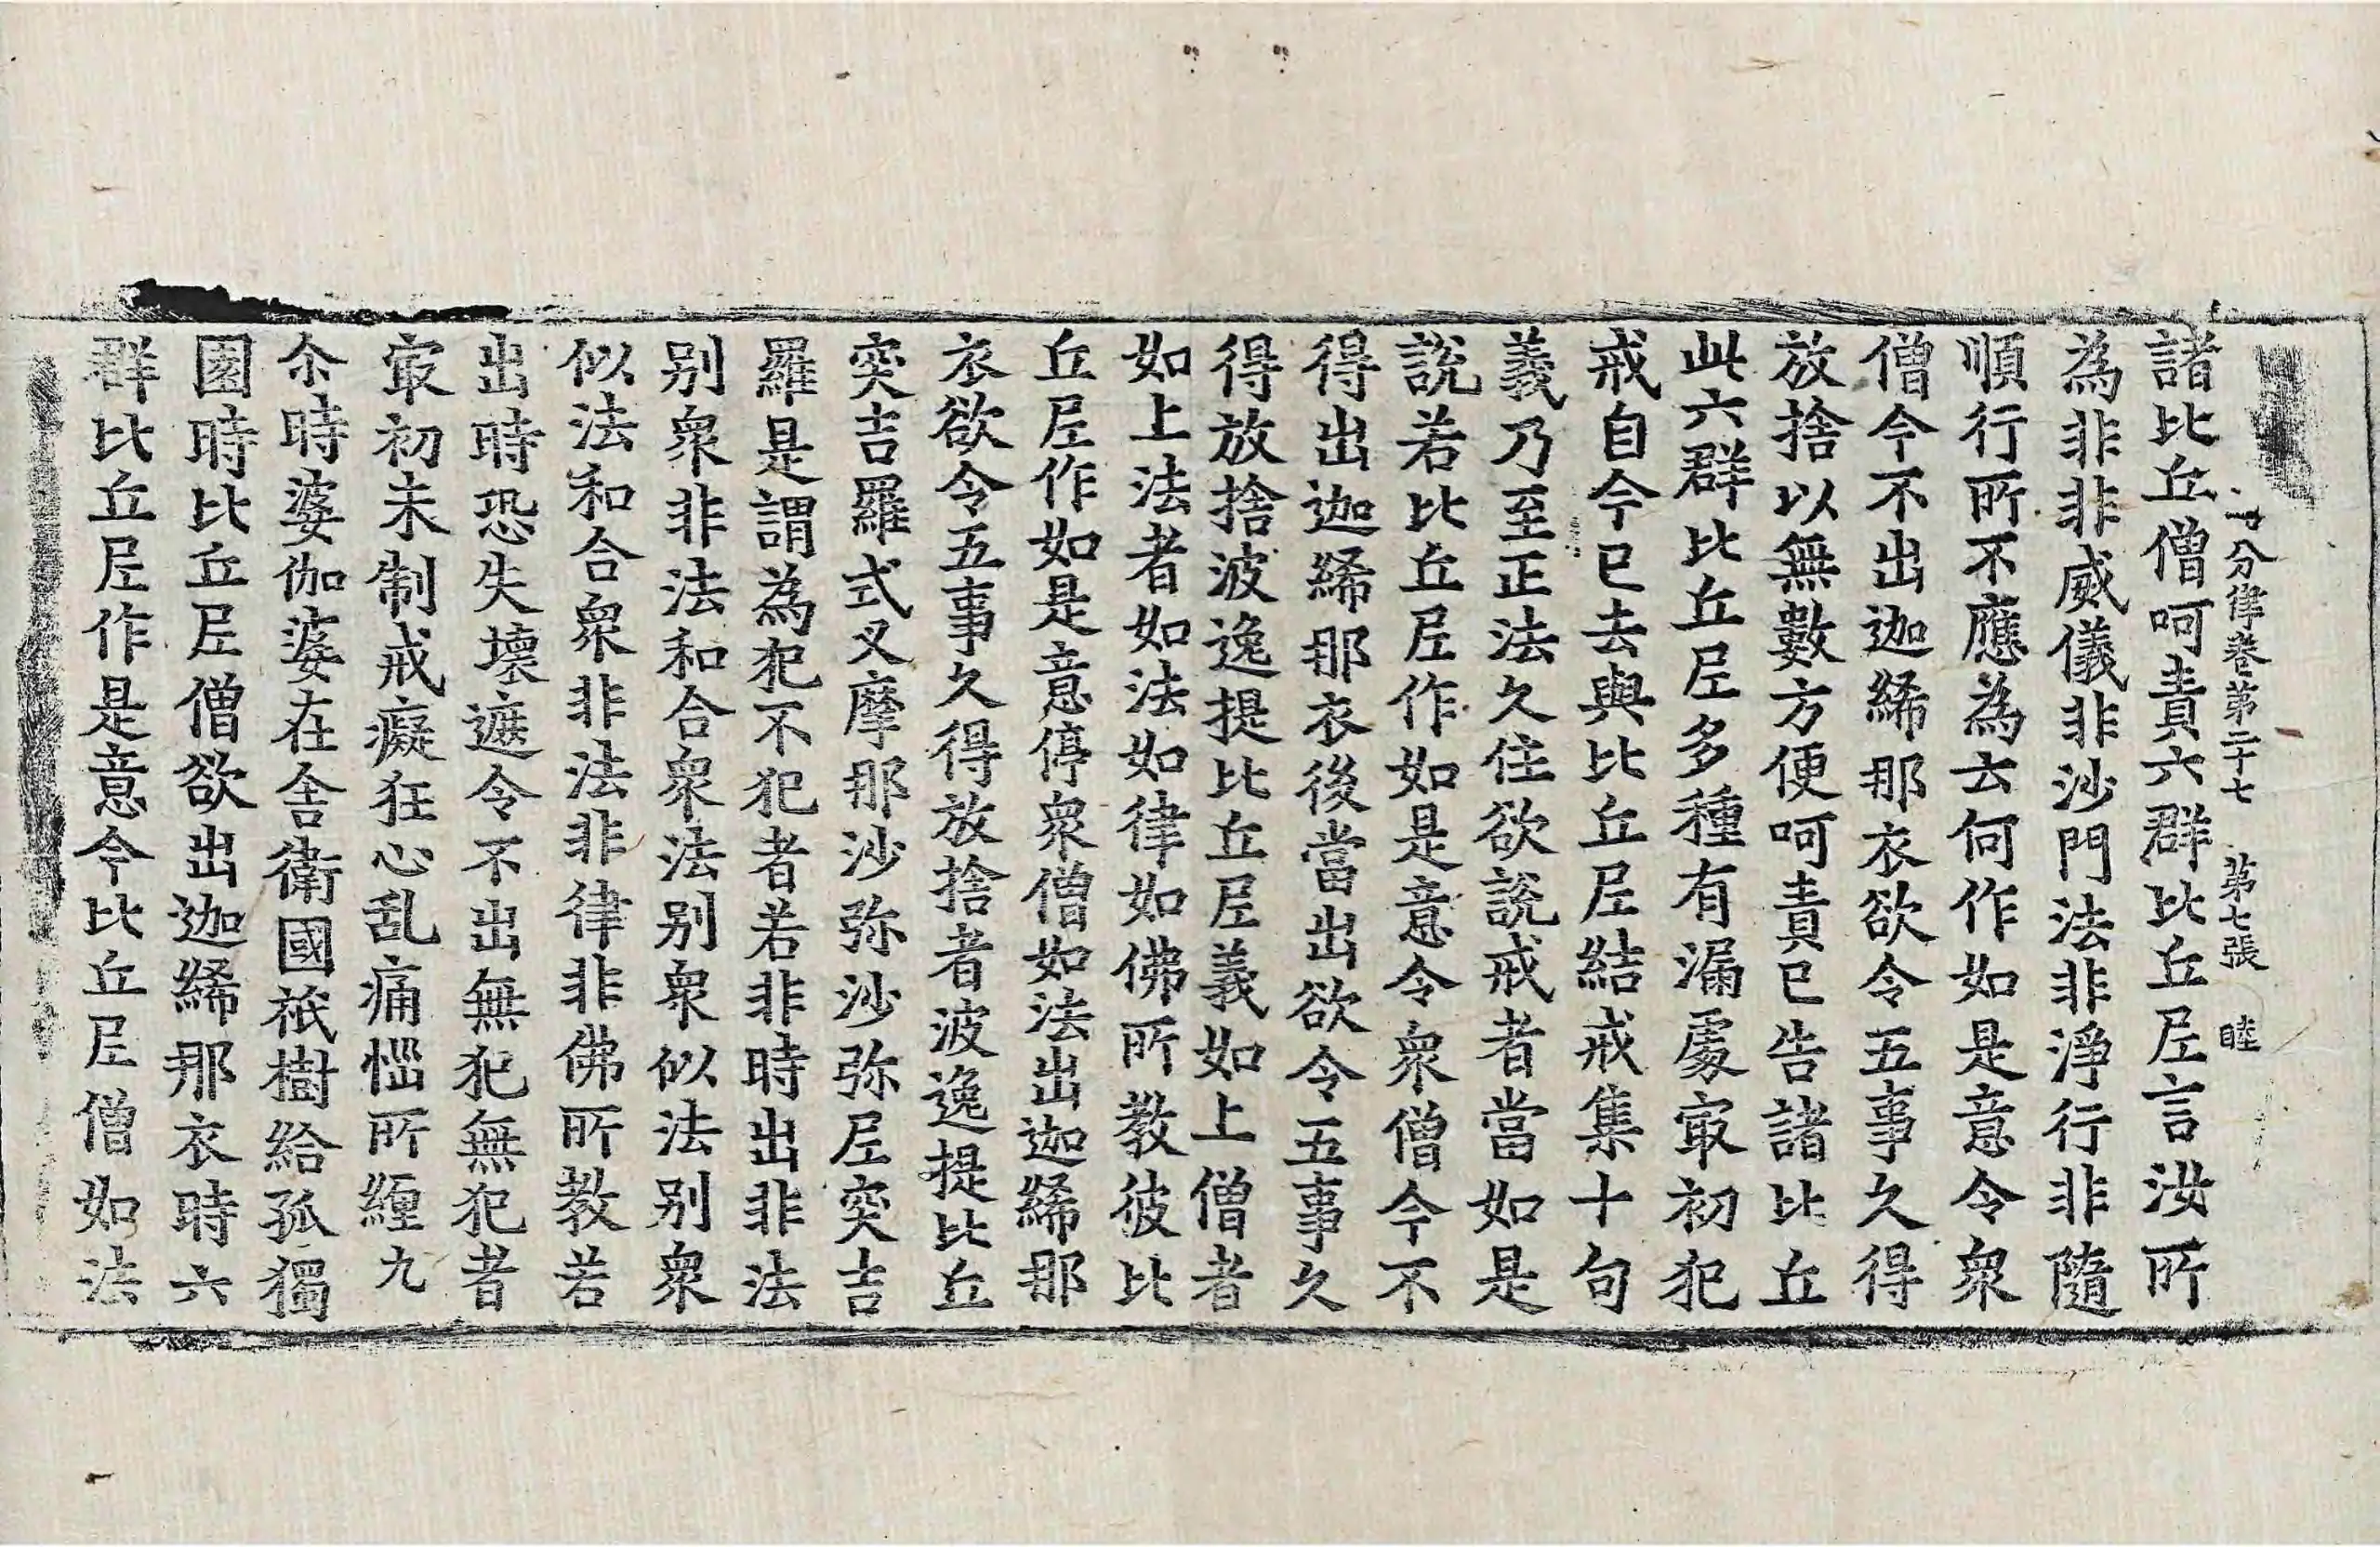 分律卷第二十七 第七張 睦
諸比丘僧呵責六群比丘尼言汝所
為非非威儀非沙門法非淨行非隨
順行所不應為云何作如是意令衆
僧今不出迦絺那衣欲令五事久得
放捨以無數方便呵責已告諸比丘
此六群比丘尼多種有漏處㝡初犯
戒自今已去與比丘尼結戒集十句
義乃至正法久住欲說戒者當如是
說若比丘尼作如是意令衆僧今不
得出迦絺那衣後當出欲令五事久
得放捨波逸提比丘尼義如上僧者
如上法者如法如律如佛所教彼比
丘尼作如是意停衆僧如法出迦絺那
衣欲令五事久得放捨者波逸提比丘
突吉羅式叉摩那沙弥沙弥尼突吉
羅是謂為犯不犯者若非時出非法
别衆非法和合衆法别衆似法别衆
似法和合衆非法非律非佛所教若
出時恐失壞遮令不出無犯無犯者
㝡初未制戒癡狂心乱痛惱所纏九
尒時婆伽婆在舍衛國祇樹給孤獨
園時比丘尼僧欲出迦絺那衣時六
群比丘尼作是意令比丘尼僧如法